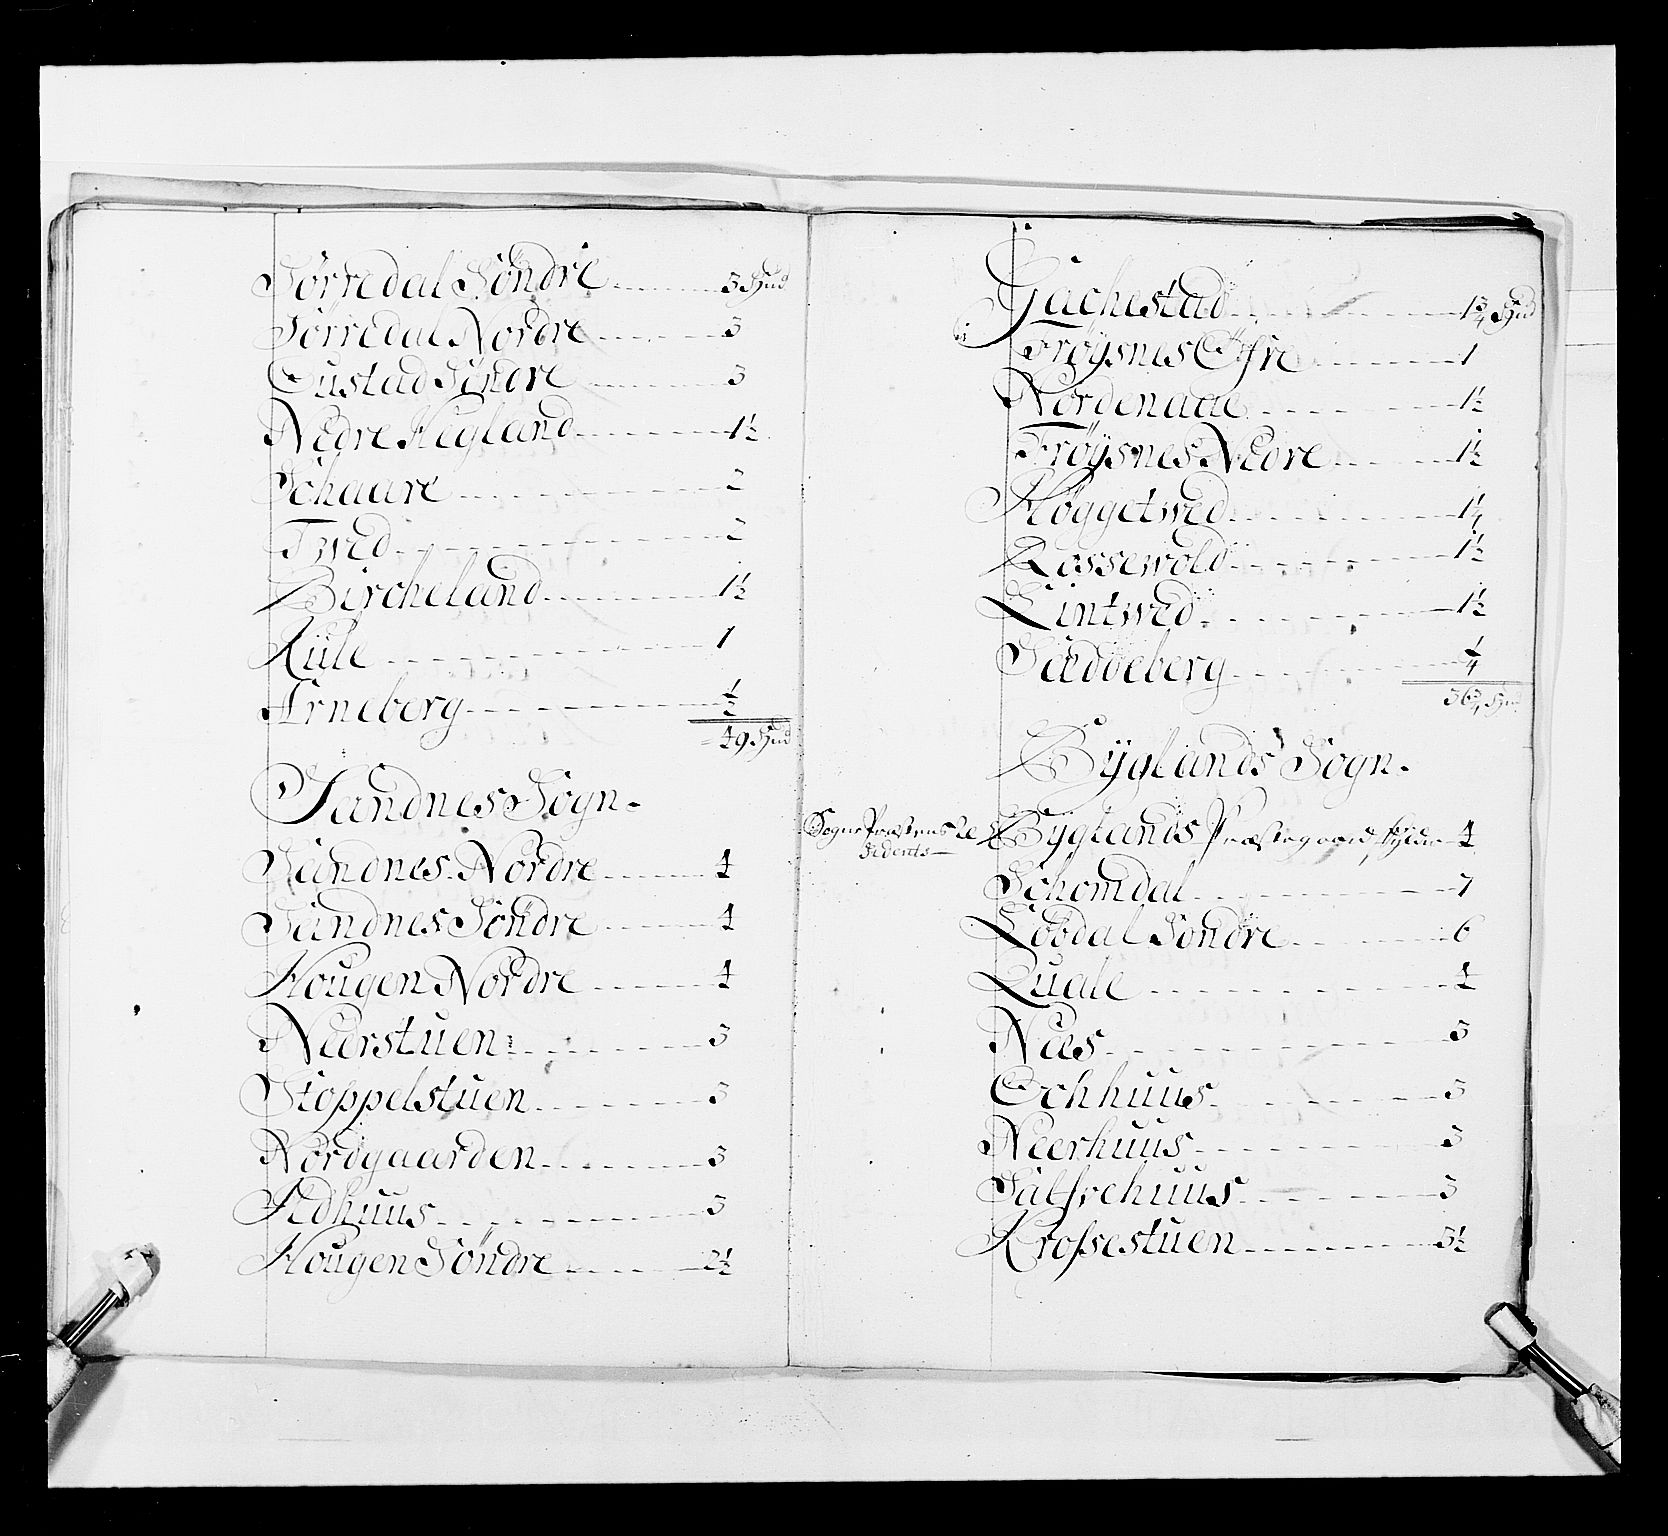 Sørredal Søndre 3 Hud
Sørredal Nordre 3
Custad Søndre 3
Nedre Hegland 1½
Schaare 2
Twed 2
Bircheland 1½
Rüle 1
Arneberg ½
49 Hud
Sandnes Sogn.
Sandnes Nordre 4
Sandnes Søndre 4
Hougen Nordre 4
Neerstuen 3
Stoppelstuen 3
Nordgaarden 3
Adhuus 3
Hougen Søndre 2½
Gachestad 1¾ Hud
Frøysnes Øfre 1
Nordenaae 1½
Frøysnes Nedre 1½
Høggetwed 1¼
Rossewold 1½
Lintwed 1½
Sæddeberg ¼
36¾ Hud
Byglands Sogn.
Sogne Præstens Re
sidents
Byglands Præstegaard skylder 4
Schomdal 7
Løbdal Søndre 6
Quale 4
Nees 3
Ochhuus 3
Neerhuus 3
Satfrehuus 3
Krossestuen 3½